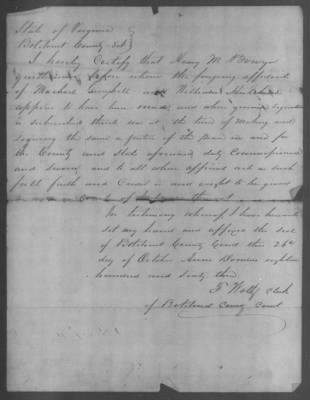 State of Virginia
Botetourt County - Sct
I hereby Certify that Henry M
before whom the forgoing affidavits
of Machael Campbell and William
appear to have been made and whose genuine signature
is subscribed thereto was at the time of making and
signing the same a justice of the peace in and for
the County and State aforesaid, duly Commissioned
and sworn, and to all whose official acts as such
full faith and Credit is and ought to be given
In testimony whereof I have hereunto
set my hand and affixed the seal
of Botetourt County Court this 26th
day of October Anno Domini eighteen
hundred and Sixty three
Clerk
of Botetourt County Court